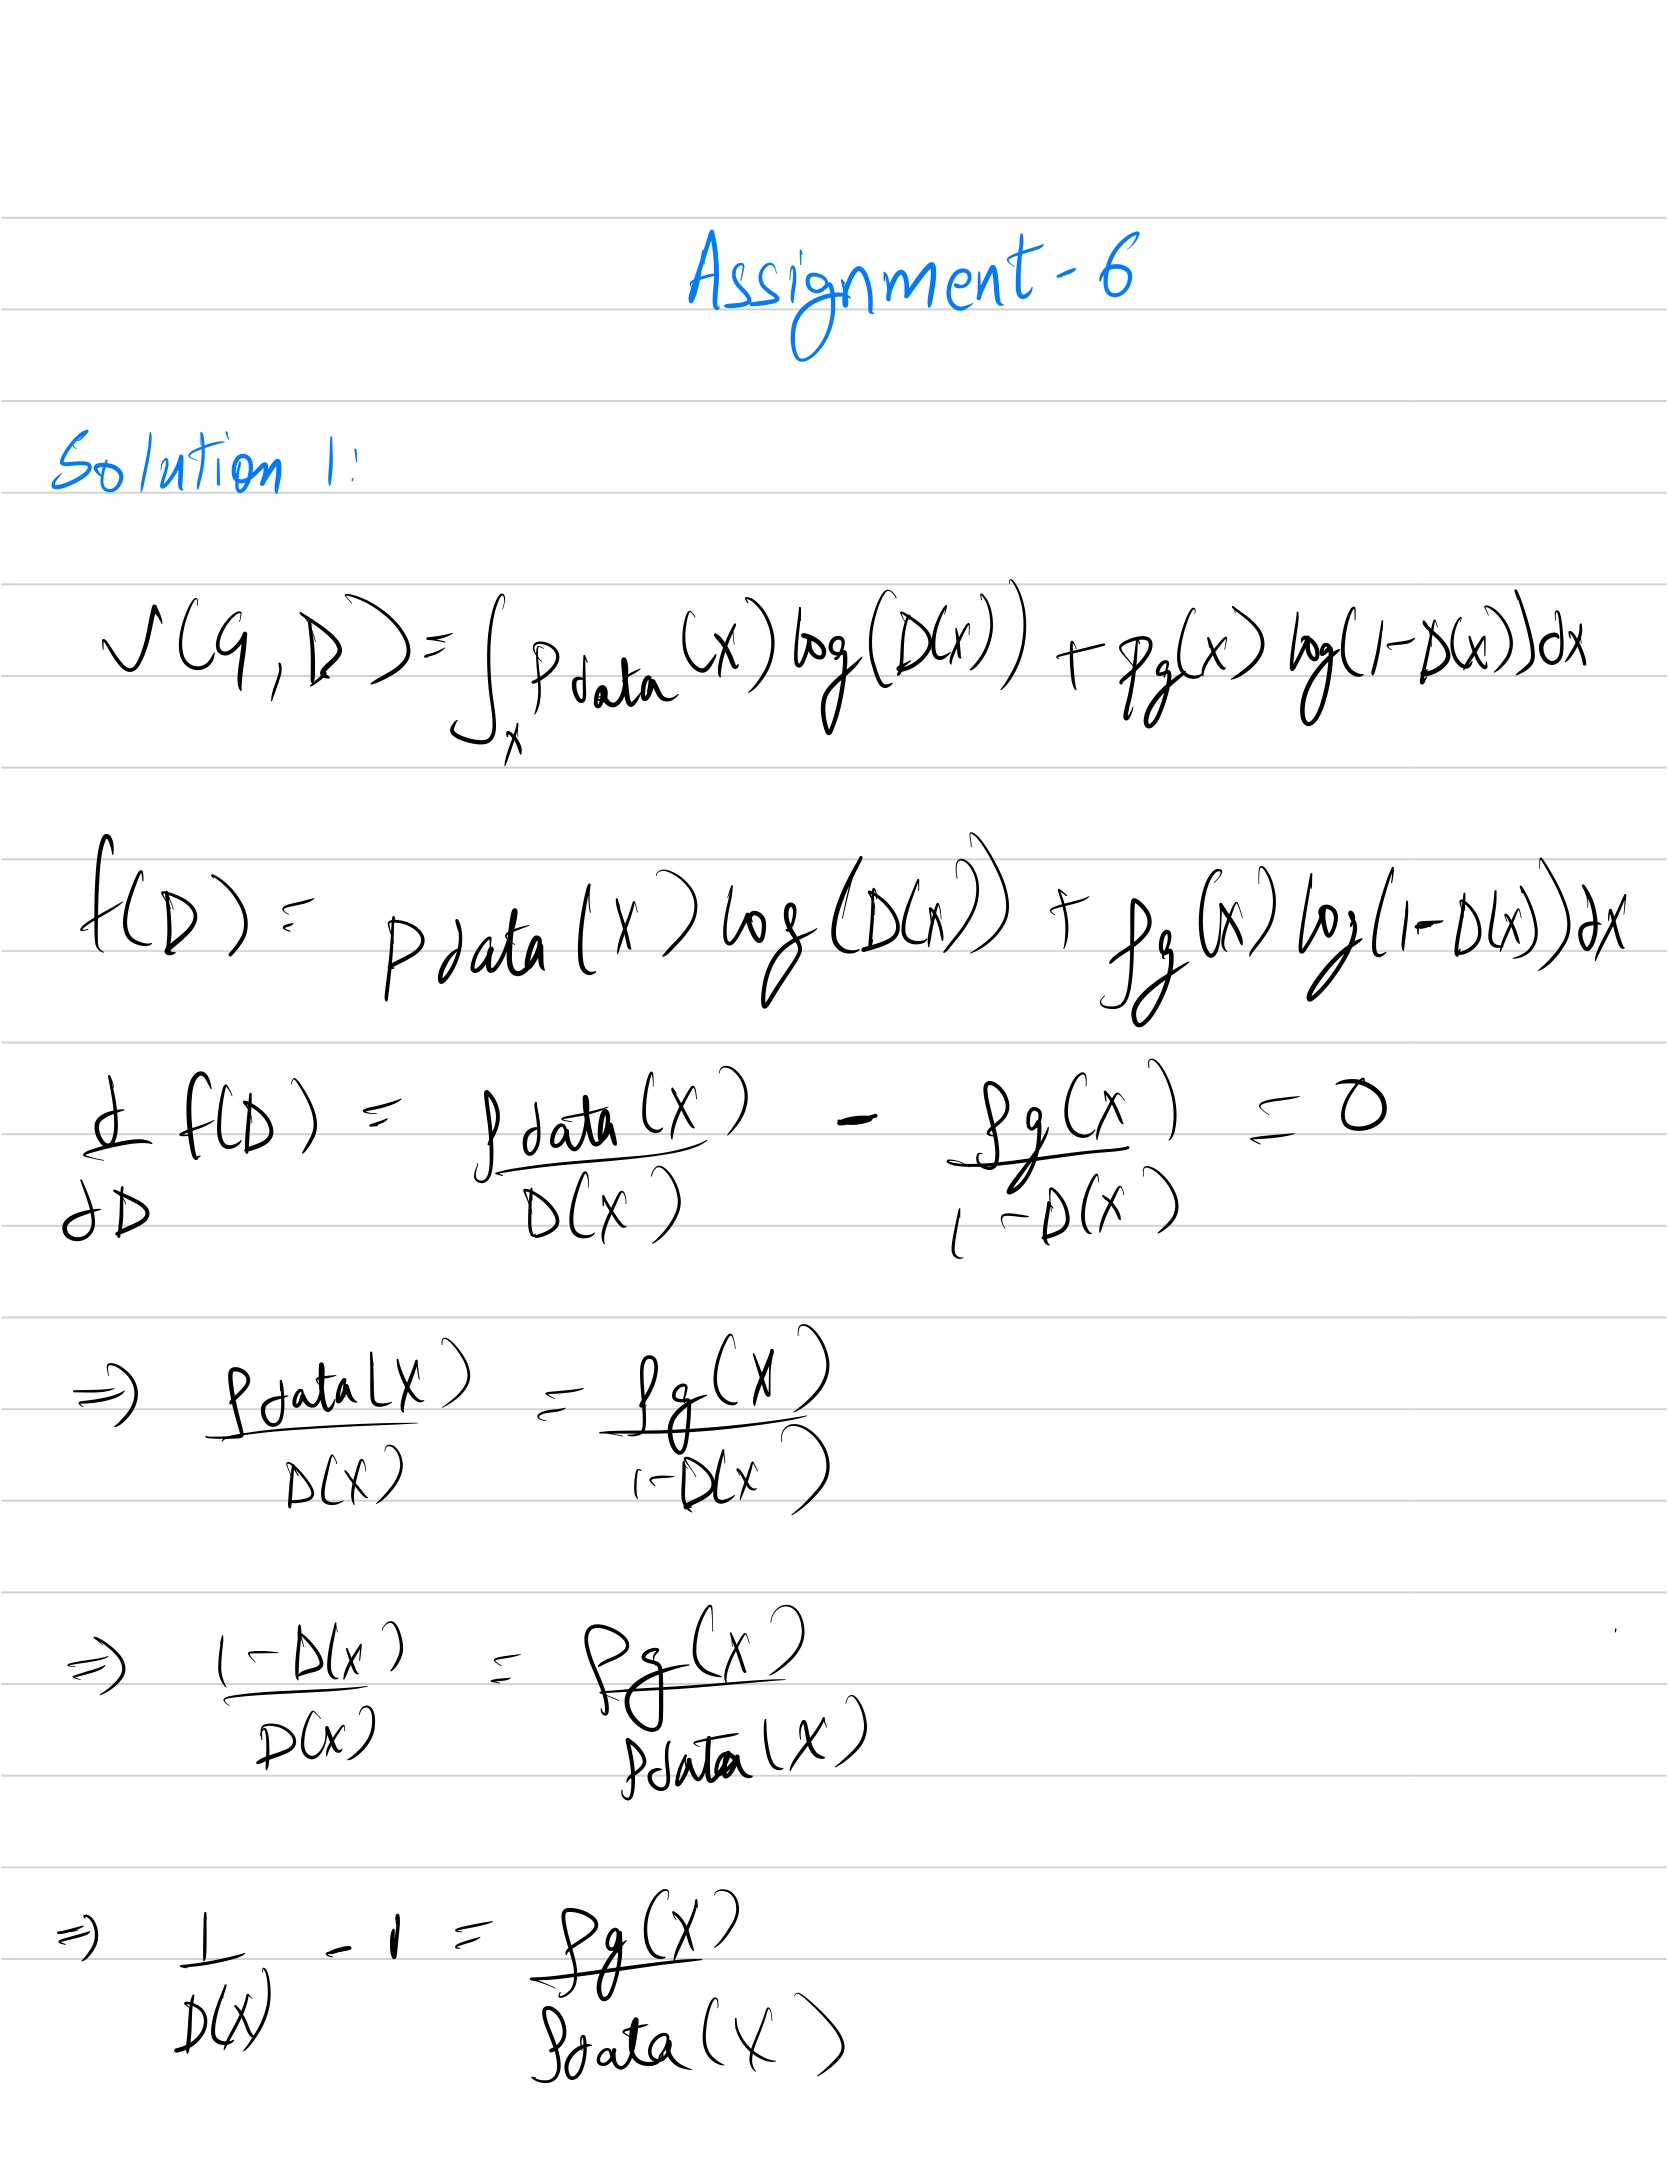 Assignment - 6
Solution 1:
V(G, D) = ∫_x P_data(x) log(D(x)) + P_g(x) log(1-D(x)) dx
f(D) = P_data(x) log(D(x)) + P_g(x) log(1-D(x)) dx
d/dD f(D) = P_data(x)/D(x) - P_g(x)/(1-D(x)) = 0
⇒ P_data(x)/D(x) = P_g(x)/(1-D(x))
⇒ (1-D(x))/D(x) = P_g(x)/P_data(x)
⇒ 1/D(x) - 1 = P_g(x)/P_data(x)